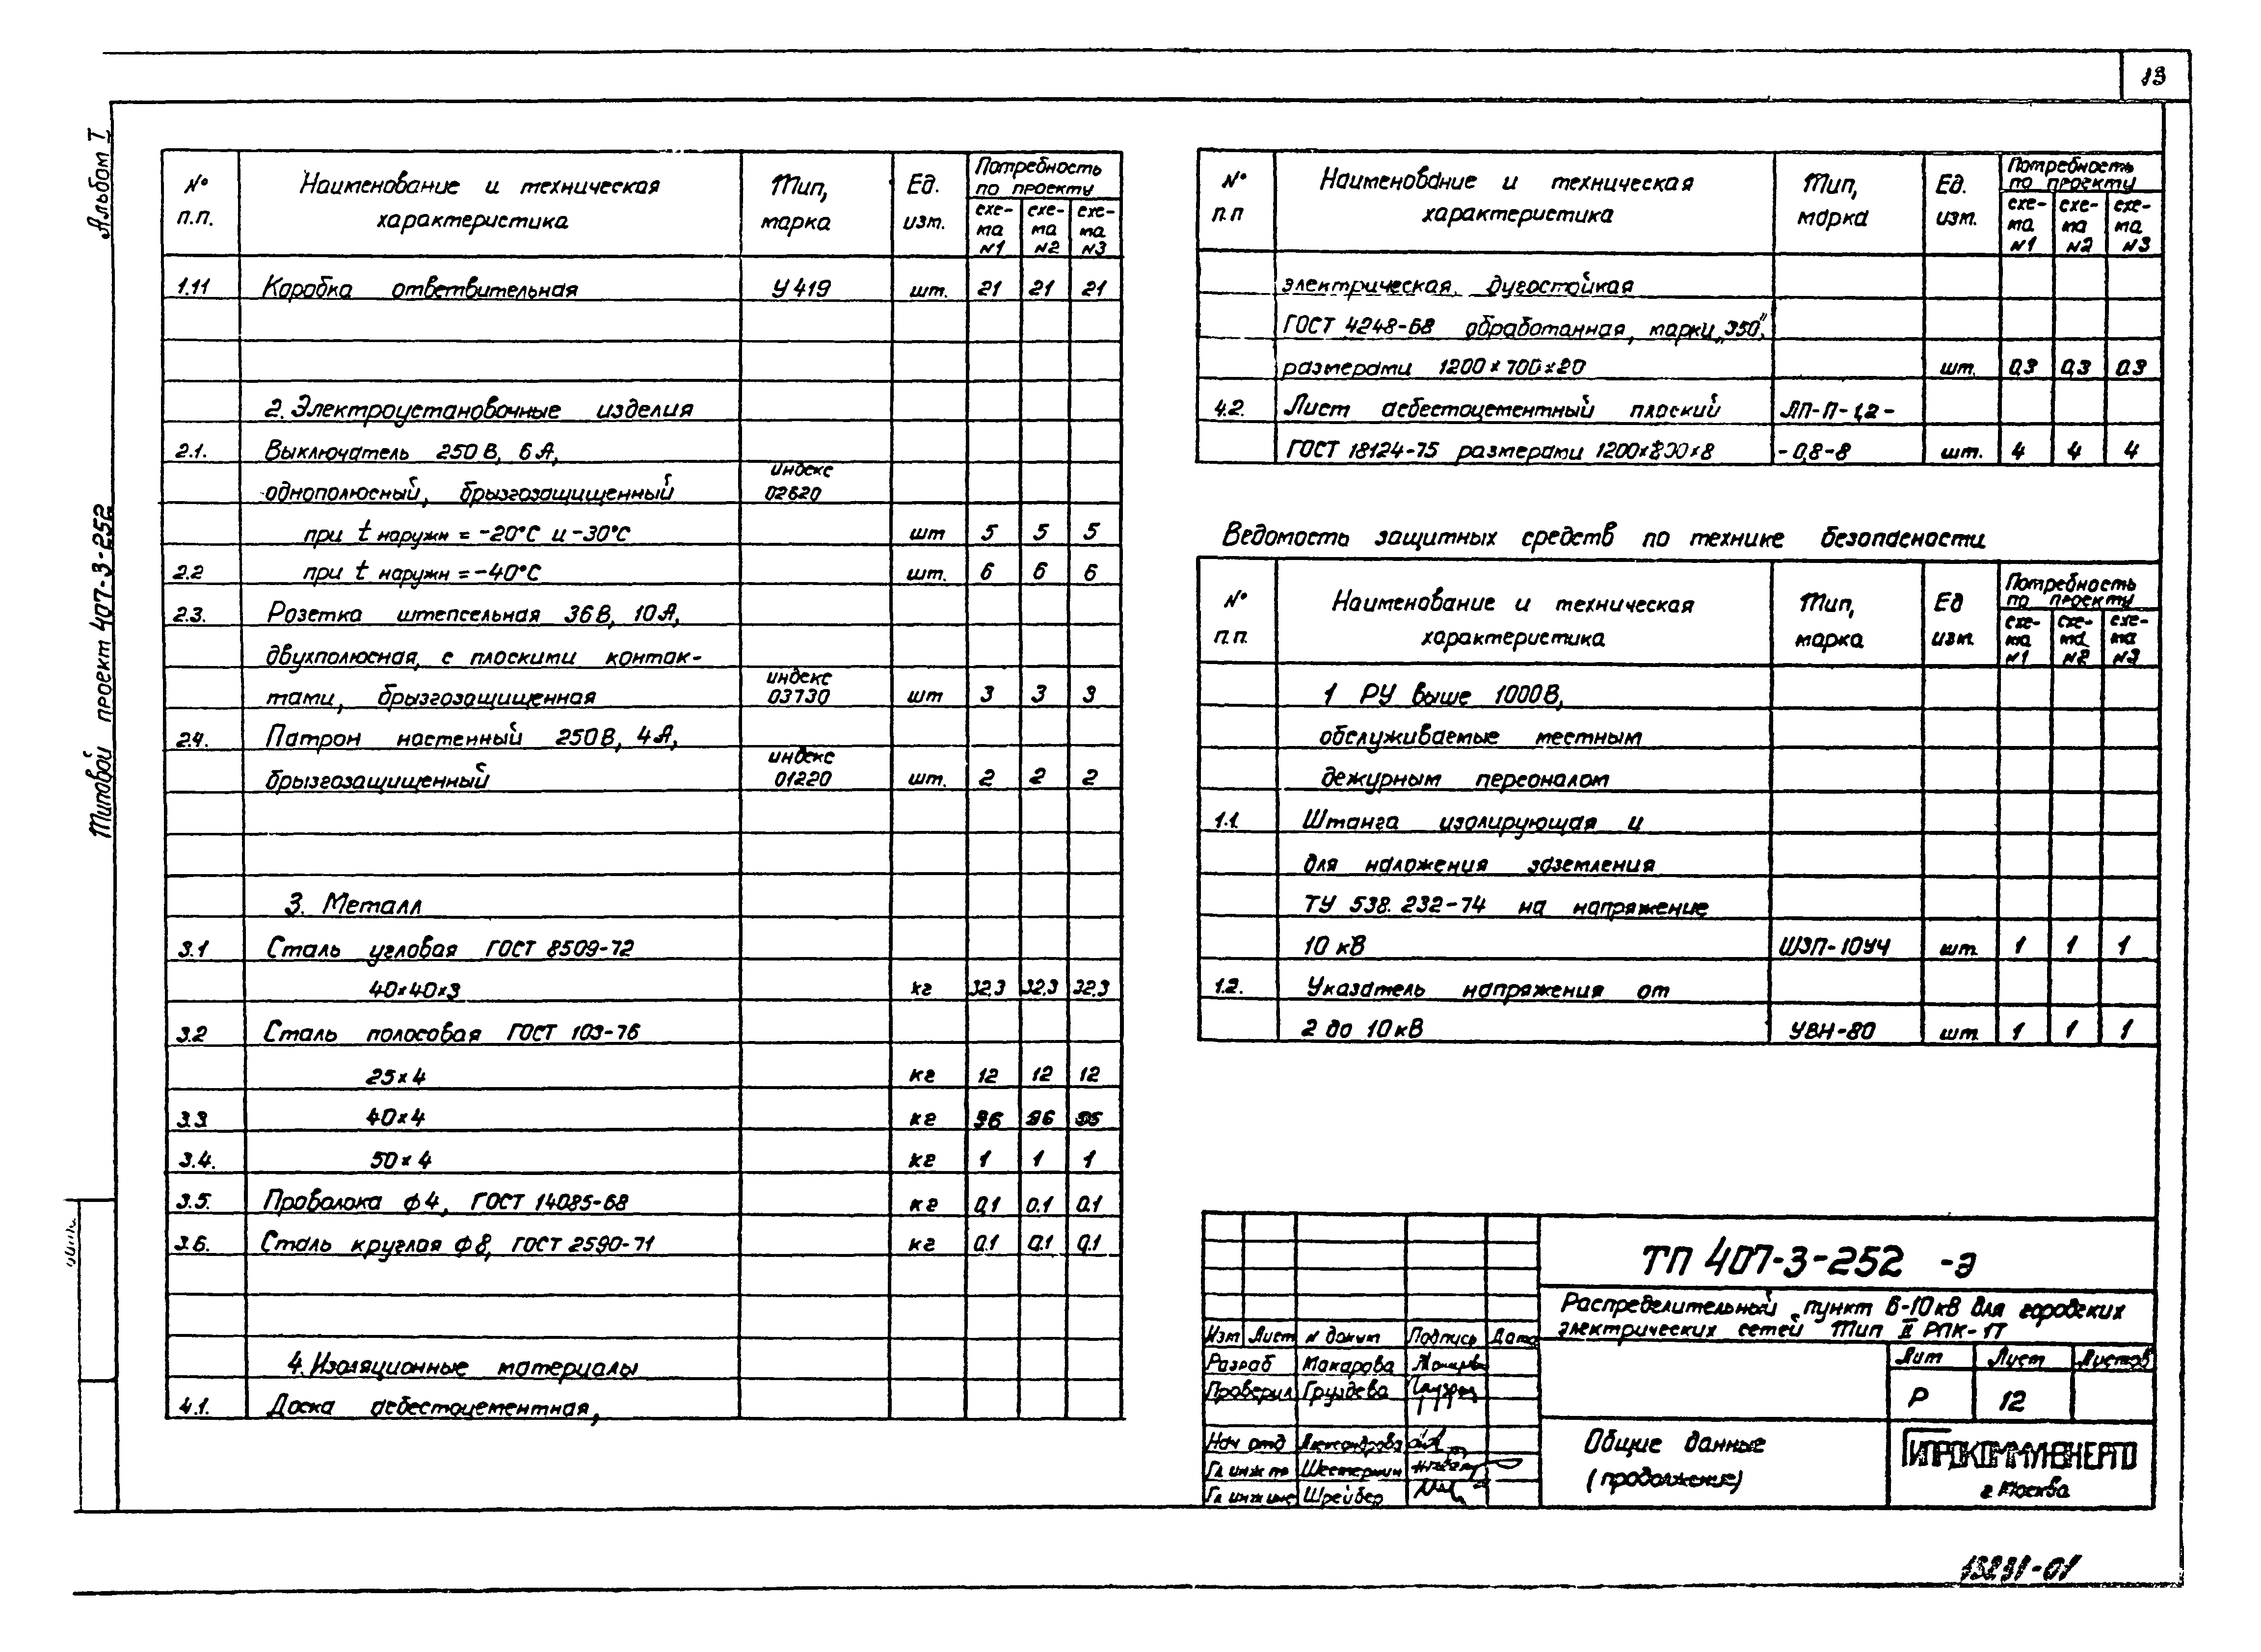 13
Альбом I
Типовой проект 407-3-252
№ п.п. Наименование и техническая характеристика Тип, марка Ед. изм. Потребность по проекту схе-ма N1 схе-ма N2 схе-ма N3
1.11 Коробка ответвительная У419 шт. 21 21 21
2. Электроустановочные изделия
2.1. Выключатель 250В, 6А,
однополюсный, брызгозащищенный индекс 02620
при t наружн = -20°С и -30°С шт 5 5 5
2.2 при t наружн = -40°С шт. 6 6 6
2.3. Розетка штепсельная 36В, 10А,
двухполюсная, с плоскими контак-
тами, брызгозащищенная индекс 03730 шт 3 3 3
2.4. Патрон настенный 250В, 4А,
брызгозащищенный индекс 01220 шт. 2 2 2
3. Металл
3.1 Сталь угловая ГОСТ 8509-72
40×40×3 кг 32,3 32,3 32,3
3.2 Сталь полосовая ГОСТ 103-76
25×4 кг 12 12 12
3.3 40×4 кг 96 96
3.4. 50×4 кг 1 1 1
3.5. Проволока ф4, ГОСТ 14085-68 кг 0,1 0.1 0.1
3.6. Сталь круглая ф8, ГОСТ 2590-71 кг 0,1 0,1 0,1
4. Изоляционные материалы
4.1. Доска асбестоцементная,
№ п.п Наименование и техническая характеристика Тип, марка Ед. изм. Потребность по проекту схе-ма N1 схе-ма N2 схе-ма N3
электрическая, дугостойкая
ГОСТ 4248-68 обработанная, марки „350",
размерами 1200×700×20 шт. 0,3 0,3 0.3
4.2. Лист асбестоцементный плоский ЛП-П-1,2-
ГОСТ 18124-75 размерами 1200×800×8 -0,8-8 шт. 4 4 4
Ведомость защитных средств по технике безопасности
№ п.п. Наименование и техническая характеристика Тип, марка Ед изм. Потребность по проекту схе-ма N1 схе-ма N2 схе-ма N3
1 РУ выше 1000В,
обслуживаемые местным
дежурным персоналом
1.1. Штанга изолирующая и
для наложения заземления
ТУ 538.232-74 на напряжение
10 кВ ШЗП-10У4 шт. 1 1 1
1.2. Указатель напряжения от
2 до 10 кВ УВН-80 шт. 1 1 1
ТП 407-3-252 -Э
Распределительный пункт 6-10кВ для городских
электрических сетей Тип II РПК-1Т
Изм Лист N докум Подпись Дата
Разраб Макарова
Проверил Груздева
Нач отд Александрова
Гл инж пр Шестернин
Гл инж инс Шрейбер
Лит Лист Листов
Р 12
Общие данные
(продолжение)
ГИПРОКОММУНЭНЕРГО
г Москва
13231-01